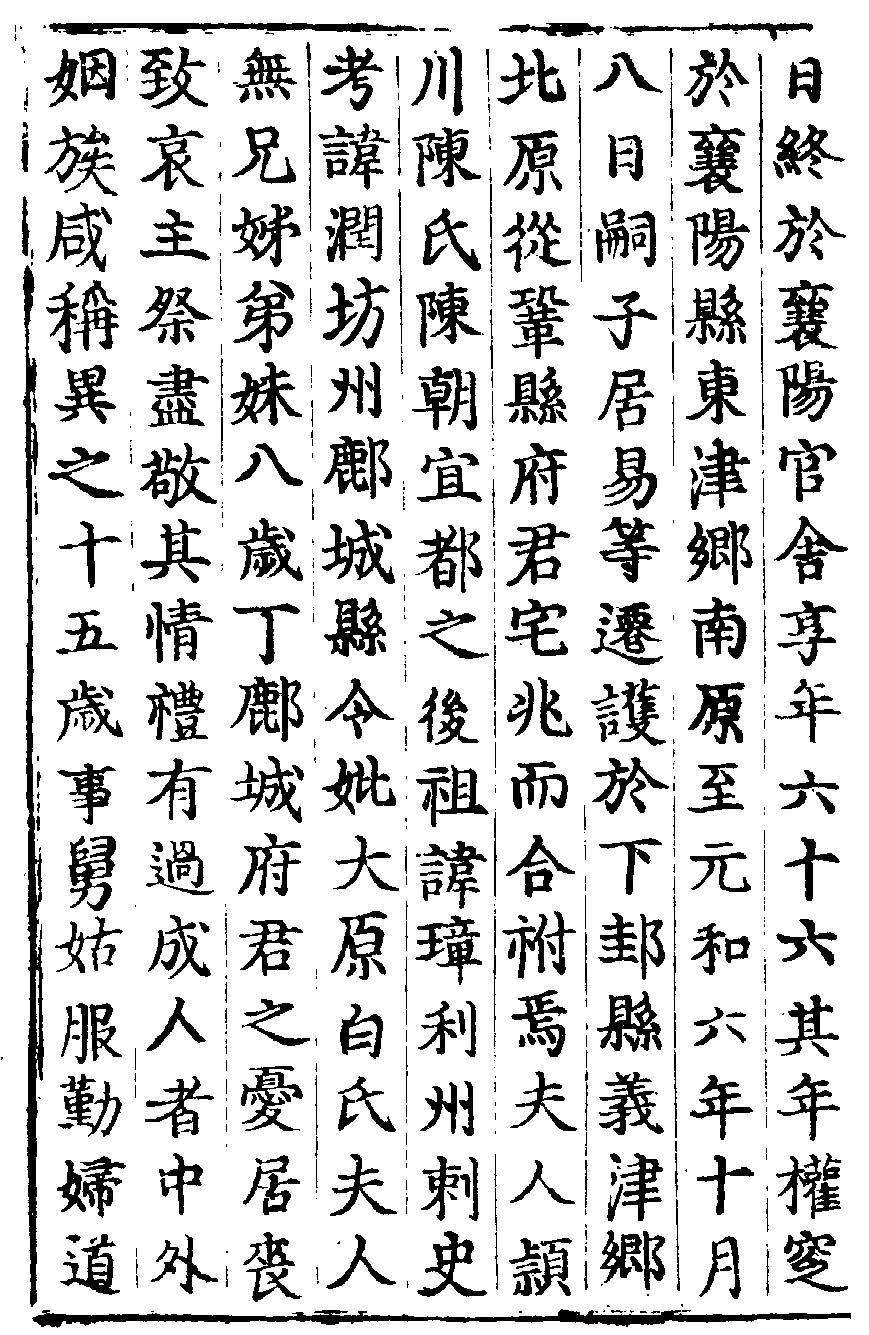 日終於襄陽官舍享年六十六其年權窆
於襄陽縣東津鄉南原至元和六年十月
八日嗣子居易等遷護於下邽縣義津鄉
北原從鞏縣府君宅兆而合祔焉夫人潁
川陳氏陳朝宜都之後祖諱璋利州刺史
考諱潤坊州鄜城縣令妣大原白氏夫人
無兄姊弟妹八歲丁鄜城府君之憂居喪
致哀主祭盡敬其情禮有過成人者中外
姻族咸稱異之十五歲事舅姑服勤婦道